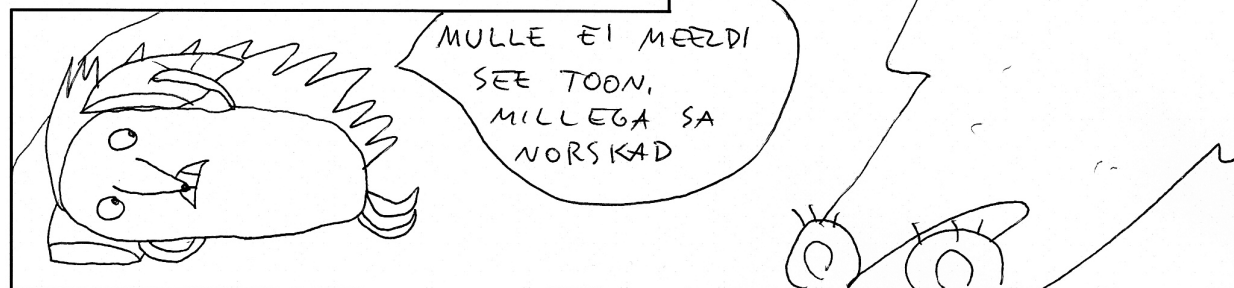 MULLE EI MEELDI
SEE TOON,
MILLEGA SA
NORSKAD